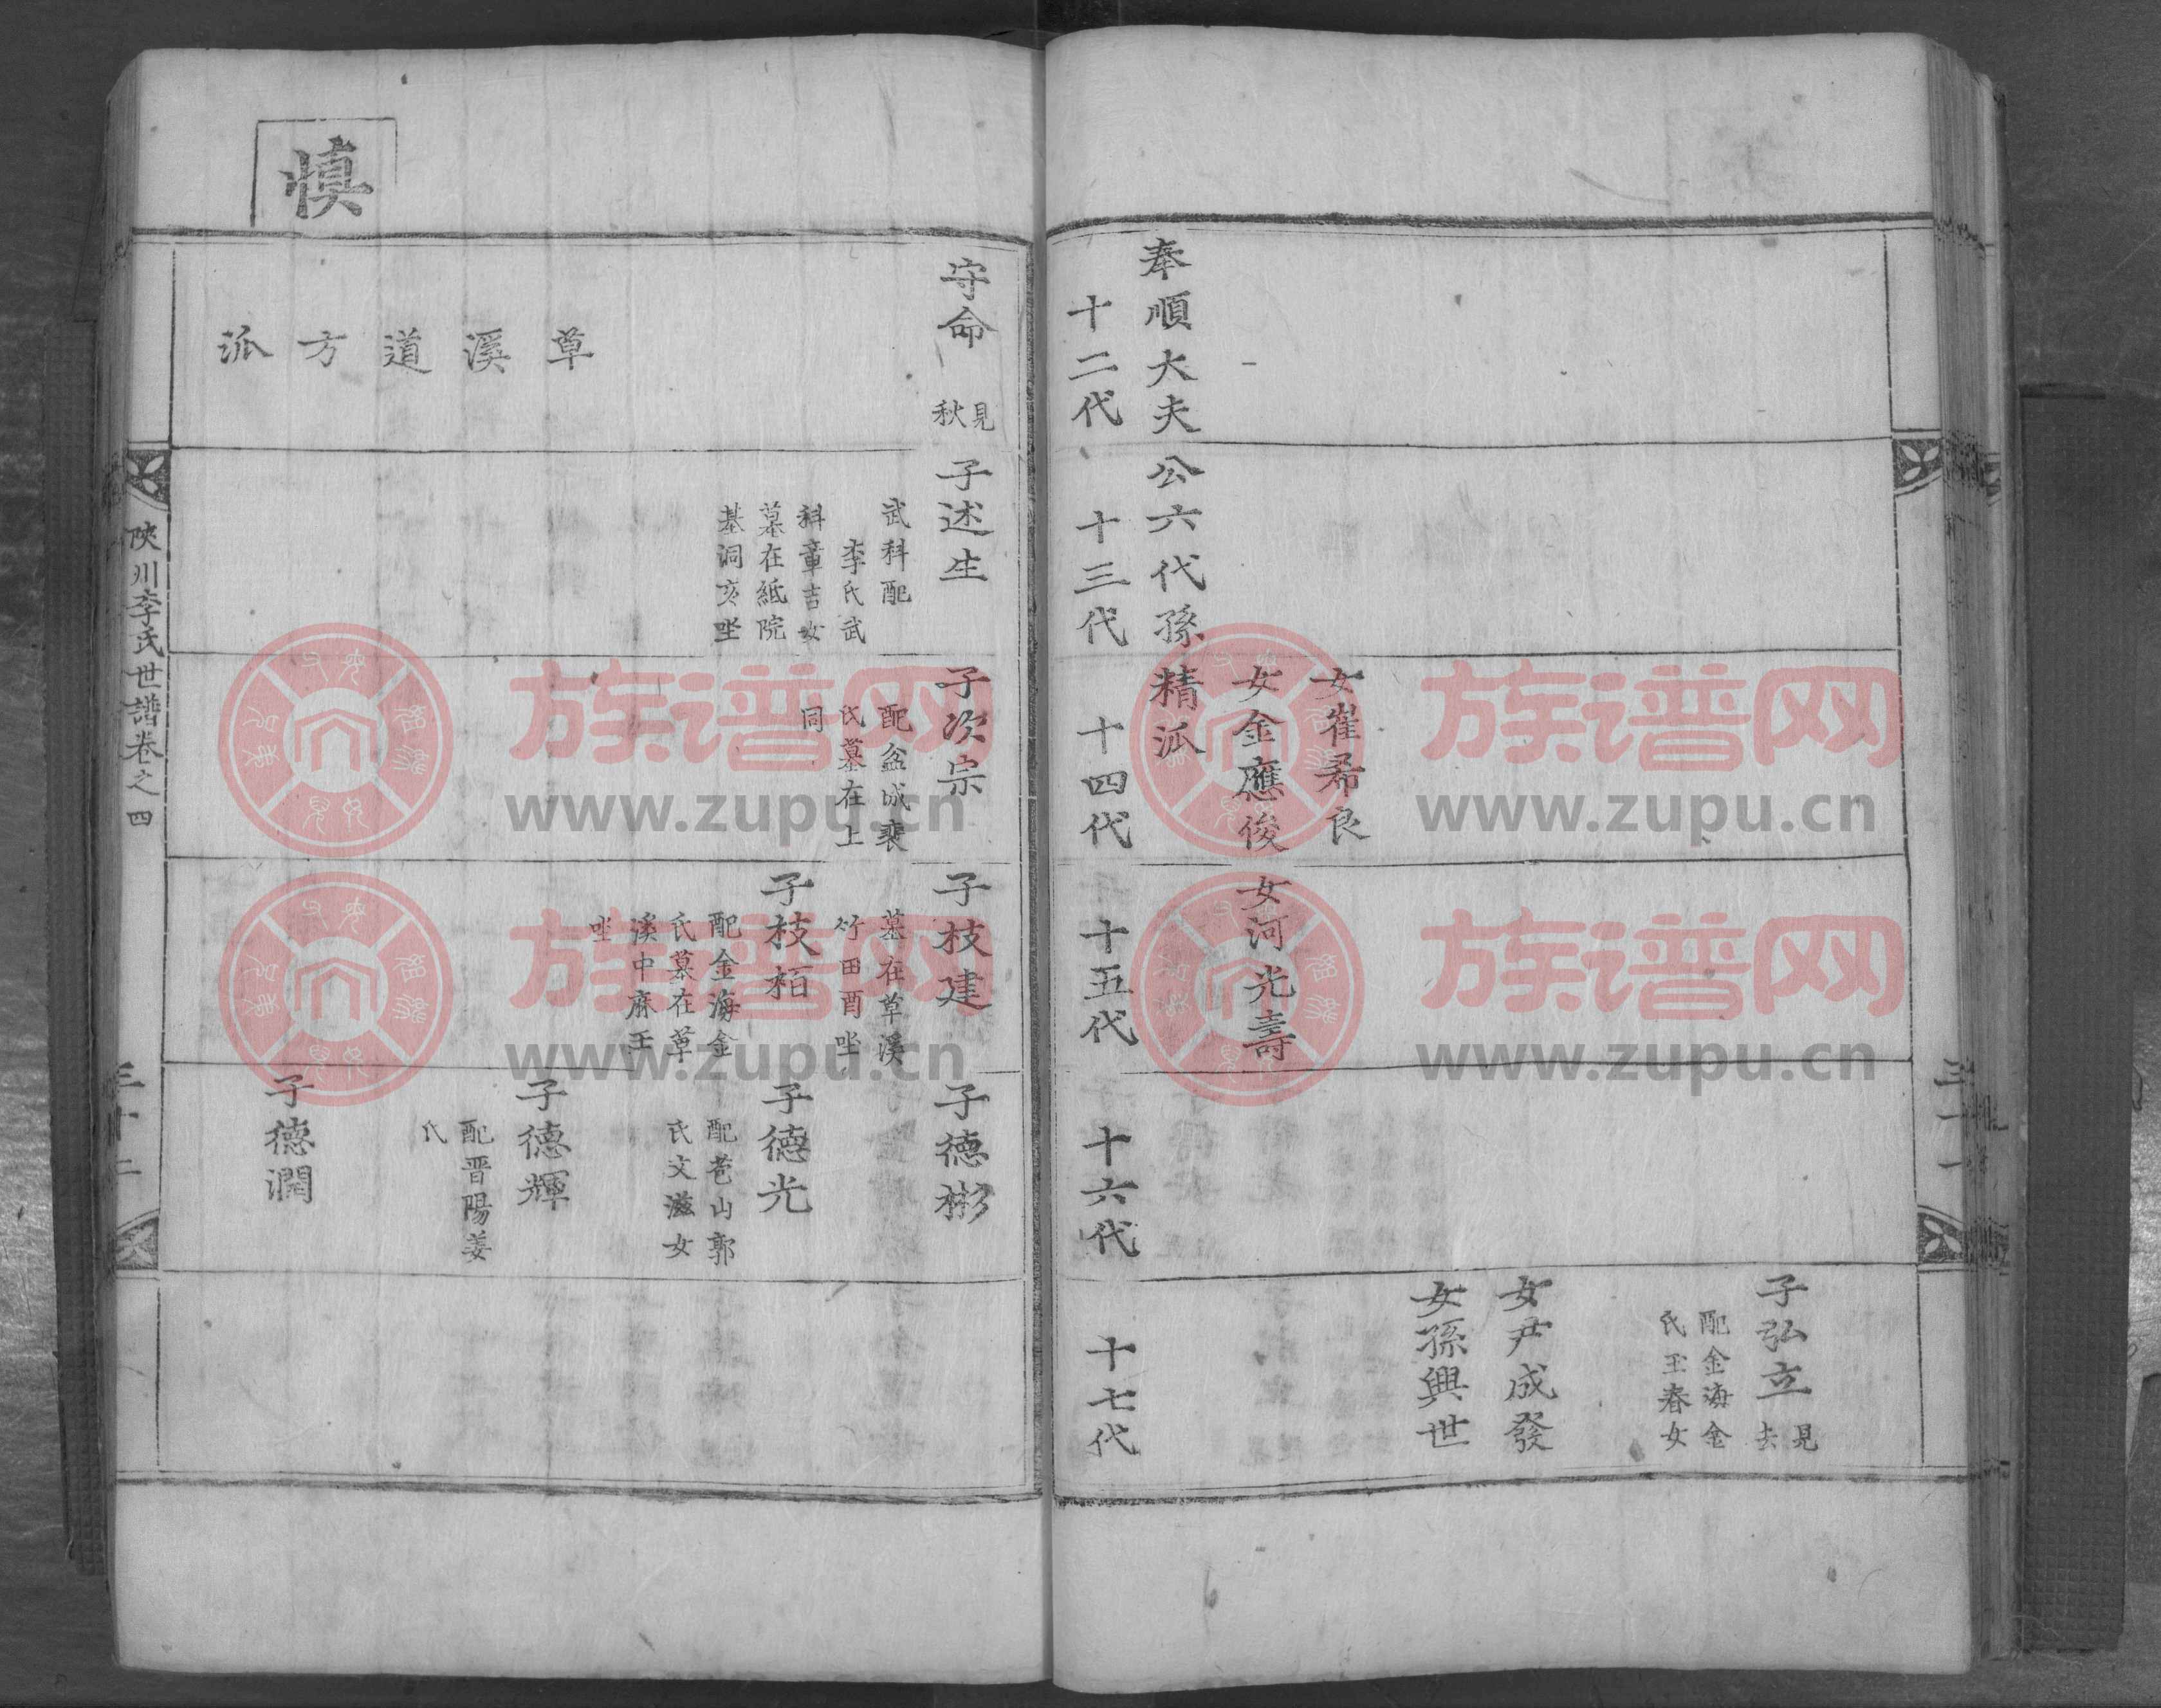 子弘立
見
去
配金海金
氏玉春女
女尹成發
女孫興世
女崔希良
女金應俊
女河光壽
奉順大夫公六代孫精派
十二代
十三代
十四代
十五代
十六代
十七代
三十一
慎
守命
見
秋
草溪道方派
子述生
武科配
李氏武
科章吉女
墓在紙院
基洞亥坐
子次宗
配盆城裵
氏墓在上
同
子枝建
墓在草溪
竹田酉坐
子枝栢
配金海金
氏墓在草
溪中麻壬
坐
子德彬
子德光
配苞山郭
氏文滋女
子德輝
配晋陽姜
氏
子德潤
陜川李氏世譜卷之四
三十二
族谱网
www.zupu.cn
族谱网
www.zupu.cn
族谱网
www.zupu.cn
族谱网
www.zupu.cn